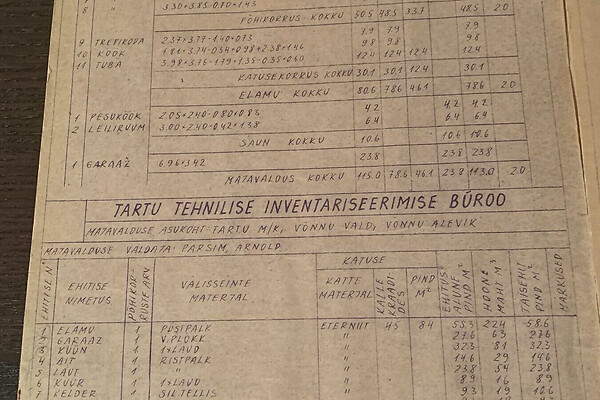 8 3.30×3.85-0.70×1.45 48.5 2.0
PÕHIKORRUS KOKKU 50.5 48.5 33.7
9 TRETIKODA 2.37×3.77-1.40×0.73 7.9 7.9 7.9
10 KÖÖK 9.8 9.8 9.8
11 TUBA 3.98×3.76-1.79×1.35-0.35×0.60 12.4 12.4 12.4 12.4
KATUSEKORRUS KOKKU 30.1 30.1 12.4 30.1
ELAMU KOKKU 80.6 78.6 46.1 78.6 2.0
1 PESUKÖÖK 2.05×2.40-0.80×0.83 4.2 4.2 4.2
2 LEILIRUUM 3.00×2.40-0.42×1.38 6.4 6.4 6.4
SAUN KOKKU 10.6 10.6 10.6
1 GARAAŽ 6.96×3.42 23.8 23.8 23.8
MATAVALDUS KOKKU 115.0 78.6 46.1 23.8 113.0 2.0
TARTU TEHNILISE INVENTARISEERIMISE BÜROO
MATAVALDUSE ASUKOHT-TARTU M/K, VÕNNU VALD, VÕNNU ALEVIK
MATAVALDUSE VALDAJA: PARSIM, ARNOLD
EHITISE N° EHITISE NIMETUS PÕHIKOR-RUSTE ARV VÄLISSEINTE MATERJAL KATUSE KATTE MATERJAL KALLE KRAADIDES PIND M² EHITUSALUNE PIND M² HOONE MAHT M³ PIND M² MÄRKUSED
1 ELAMU 1 PÜSTPALK ETERNIIT 45 84 55.3 224 58.6
2 GARAAŽ 1 V.PLOKK " 27.6 63 27.6
3 KÜÜN 1 1×LAUD " 32.3 81 32.3
4 AIT 1 RISTPALK " 14.6 29 14.6
5 LAUT 1 " " 23.8 54 23.8
6 KUUR 1 1×LAUD " 8.9 16 8.9
7 KELDER 1 SIL.TELLIS " 9.3 19 10.6